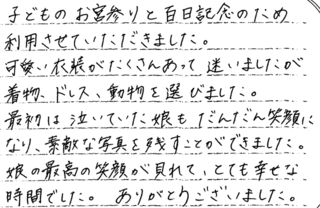 子どものお宮参りと百日記念のため
利用させていただきました。
可愛い衣裳がたくさんあって迷いましたが
着物、ドレス、動物を選びました。
最初は泣いていた娘もだんだん笑顔に
なり、素敵な写真を残すことができました。
娘の最高の笑顔が見れて、とても幸せな
時間でした。 ありがとうございました。